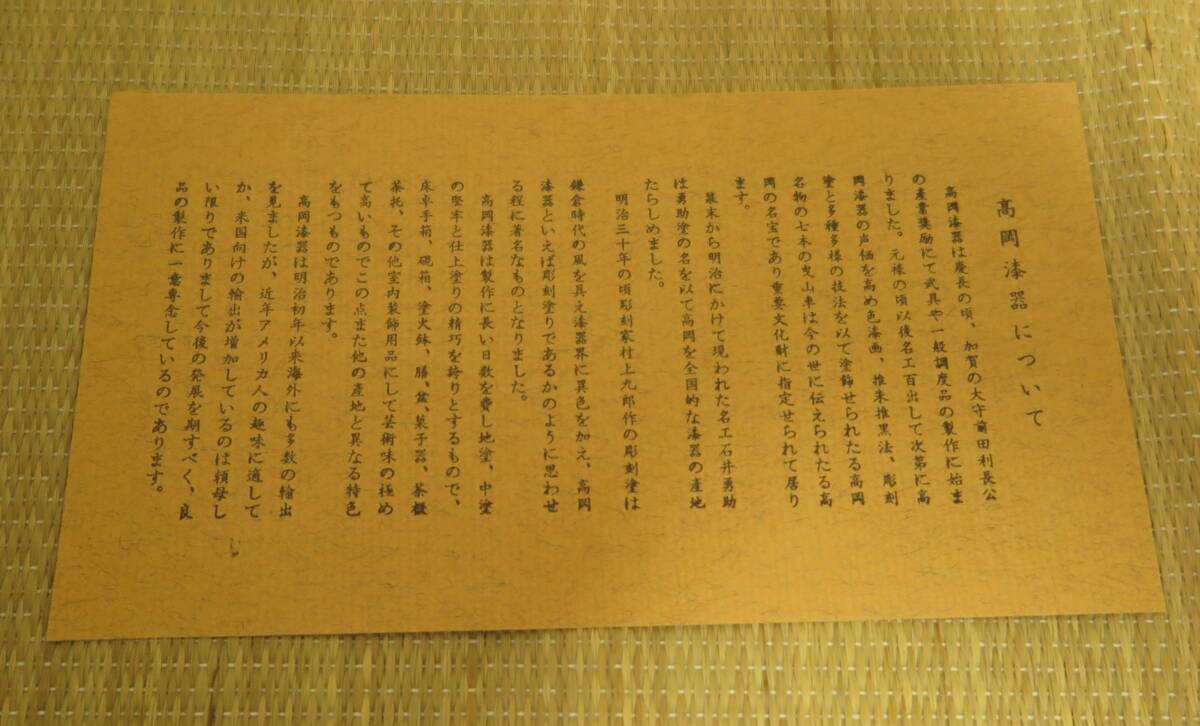 高岡漆器について
高岡漆器は慶長の頃、加賀の大守前田利長公
の産業奨励にて武具や一般調度品の製作に始ま
りました。元禄の頃以後名工百出して次第に高
岡漆器の声価を高め色漆画、推朱推黒法、彫刻
塗と多種多様の技法を以て塗飾せられたる高岡
名物の七本の曳山車は今の世に伝えられたる高
岡の名宝であり重要文化財に指定せられて居り
ます。
幕末から明治にかけて現われた名工石井勇助
は勇助塗の名を以て高岡を全国的な漆器の産地
たらしめました。
明治三十年の頃彫刻家村上九郎作の彫刻塗は
鎌倉時代の風を具え漆器界に異色を加え、高岡
漆器といえば彫刻塗りであるかのように思わせ
る程に著名なものとなりました。
高岡漆器は製作に長い日数を費し地塗、中塗
の堅牢と仕上塗りの精巧を誇りとするもので、
床卓手箱、硯箱、塗火鉢、膳、盆、菓子器、茶櫃
茶托、その他室内装飾用品にして芸術味の極め
て高いものでこの点また他の産地と異なる特色
をもつものであります。
高岡漆器は明治初年以来海外にも多数の輸出
を見ましたが、近年アメリカ人の趣味に適して
か、米国向けの輸出が増加しているのは頼母し
い限りでありまして今後の発展を期すべく、良
品の製作に一意専念しているのであります。